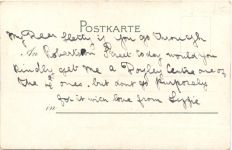 POSTKARTE
My Dear Hetty if you go through
in Robertson Street today would you
kindly get me a Doyley Centre one of
the ones, but dont go purposely
for it with love from